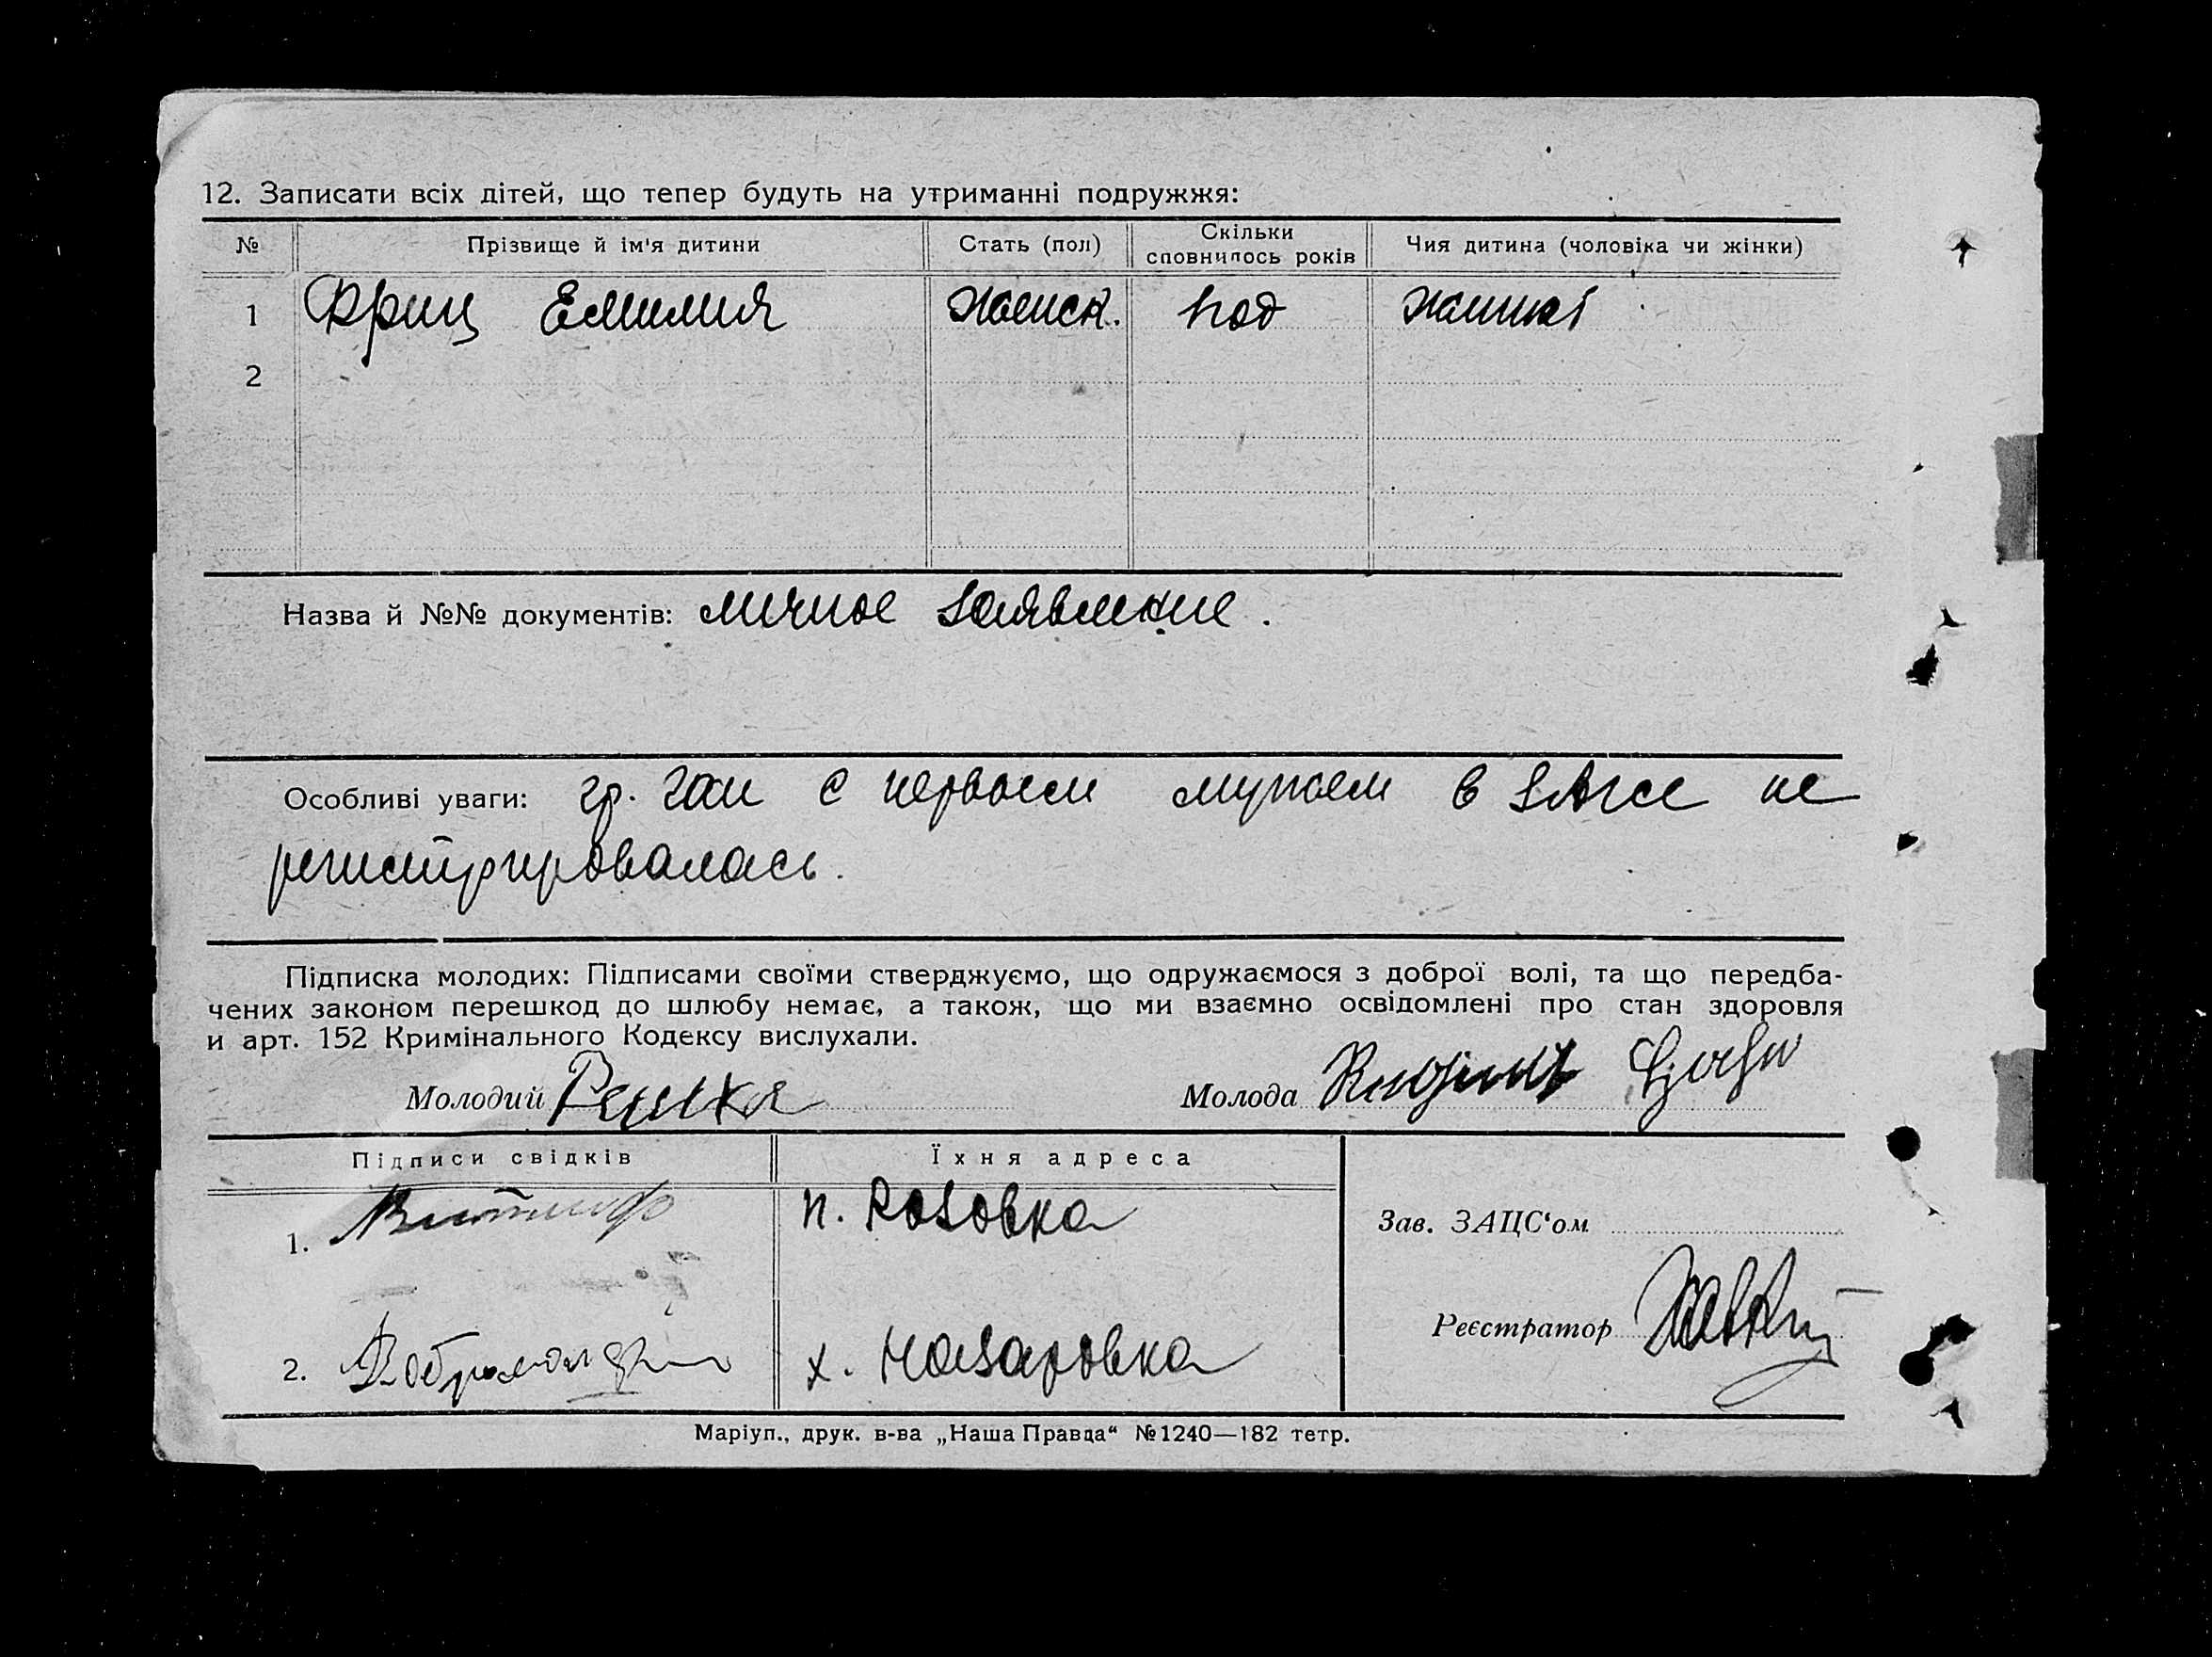 12. Записати всіх дітей, що тепер будуть на утриманні подружжя:
№ Прізвище й ім'я дитини Стать (пол) Скільки сповнилось років Чия дитина (чоловіка чи жінки)
1 Фриц Емилия женск. год жинки
2
Назва й №№ документів: личное заявление.
Особливі уваги: гр. Ган с первым мужем в ЗАГСе не
регистрировалась.
Підписка молодих: Підписами своїми стверджуємо, що одружаємося з доброї волі, та що передба-
чених законом перешкод до шлюбу немає, а також, що ми взаємно освідомлені про стан здоровля
и арт. 152 Кримінального Кодексу вислухали.
Молодий Молода
Підписи свідків Їхня адреса
1. п. Розовка
Зав. ЗАЦС'ом
Реєстратор
2. х. Назаровка
Маріуп., друк. в-ва „Наша Правда“ №1240—182 тетр.